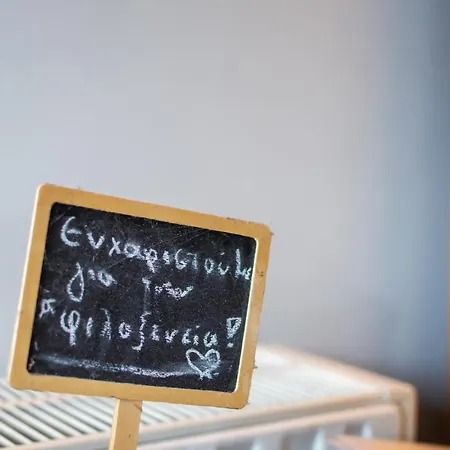 Ευχαριστούμε
για την
φιλοξενεία!